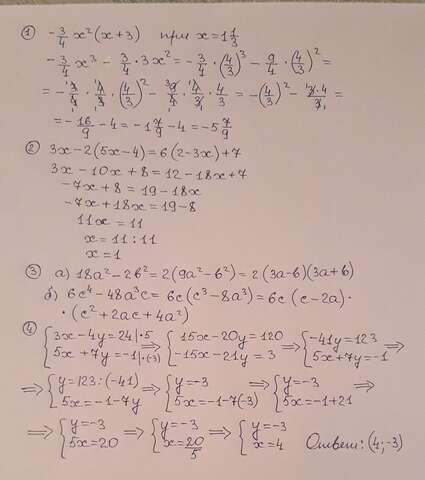 ① -3/4 x²(x+3) при x=1 1/3
-3/4 x³ - 3/4 · 3x² = -3/4 · (4/3)³ - 9/4 · (4/3)² =
= -3/4 · 4/3 · (4/3)² - 9/4 · 4/3 · 4/3 = -(4/3)² - 3·4/3 =
= -16/9 - 4 = -1 7/9 - 4 = -5 7/9
② 3x-2(5x-4)=6(2-3x)+7
3x-10x+8=12-18x+7
-7x+8=19-18x
-7x+18x=19-8
11x=11
x=11:11
x=1
③ а) 18a²-2b²=2(9a²-b²)=2(3a-b)(3a+b)
б) 6c⁴-48a³c=6c(c³-8a³)=6c(c-2a)·
·(c²+2ac+4a²)
④ {3x-4y=24|·5 5x+7y=-1|·(-3) ⇒ {15x-20y=120 -15x-21y=3 ⇒ {-41y=123 5x+7y=-1 ⇒
⇒ {y=123:(-41) 5x=-1-7y ⇒ {y=-3 5x=-1-7(-3) ⇒ {y=-3 5x=-1+21 ⇒
⇒ {y=-3 5x=20 ⇒ {y=-3 x=20/5 ⇒ {y=-3 x=4 Ответ: (4;-3)